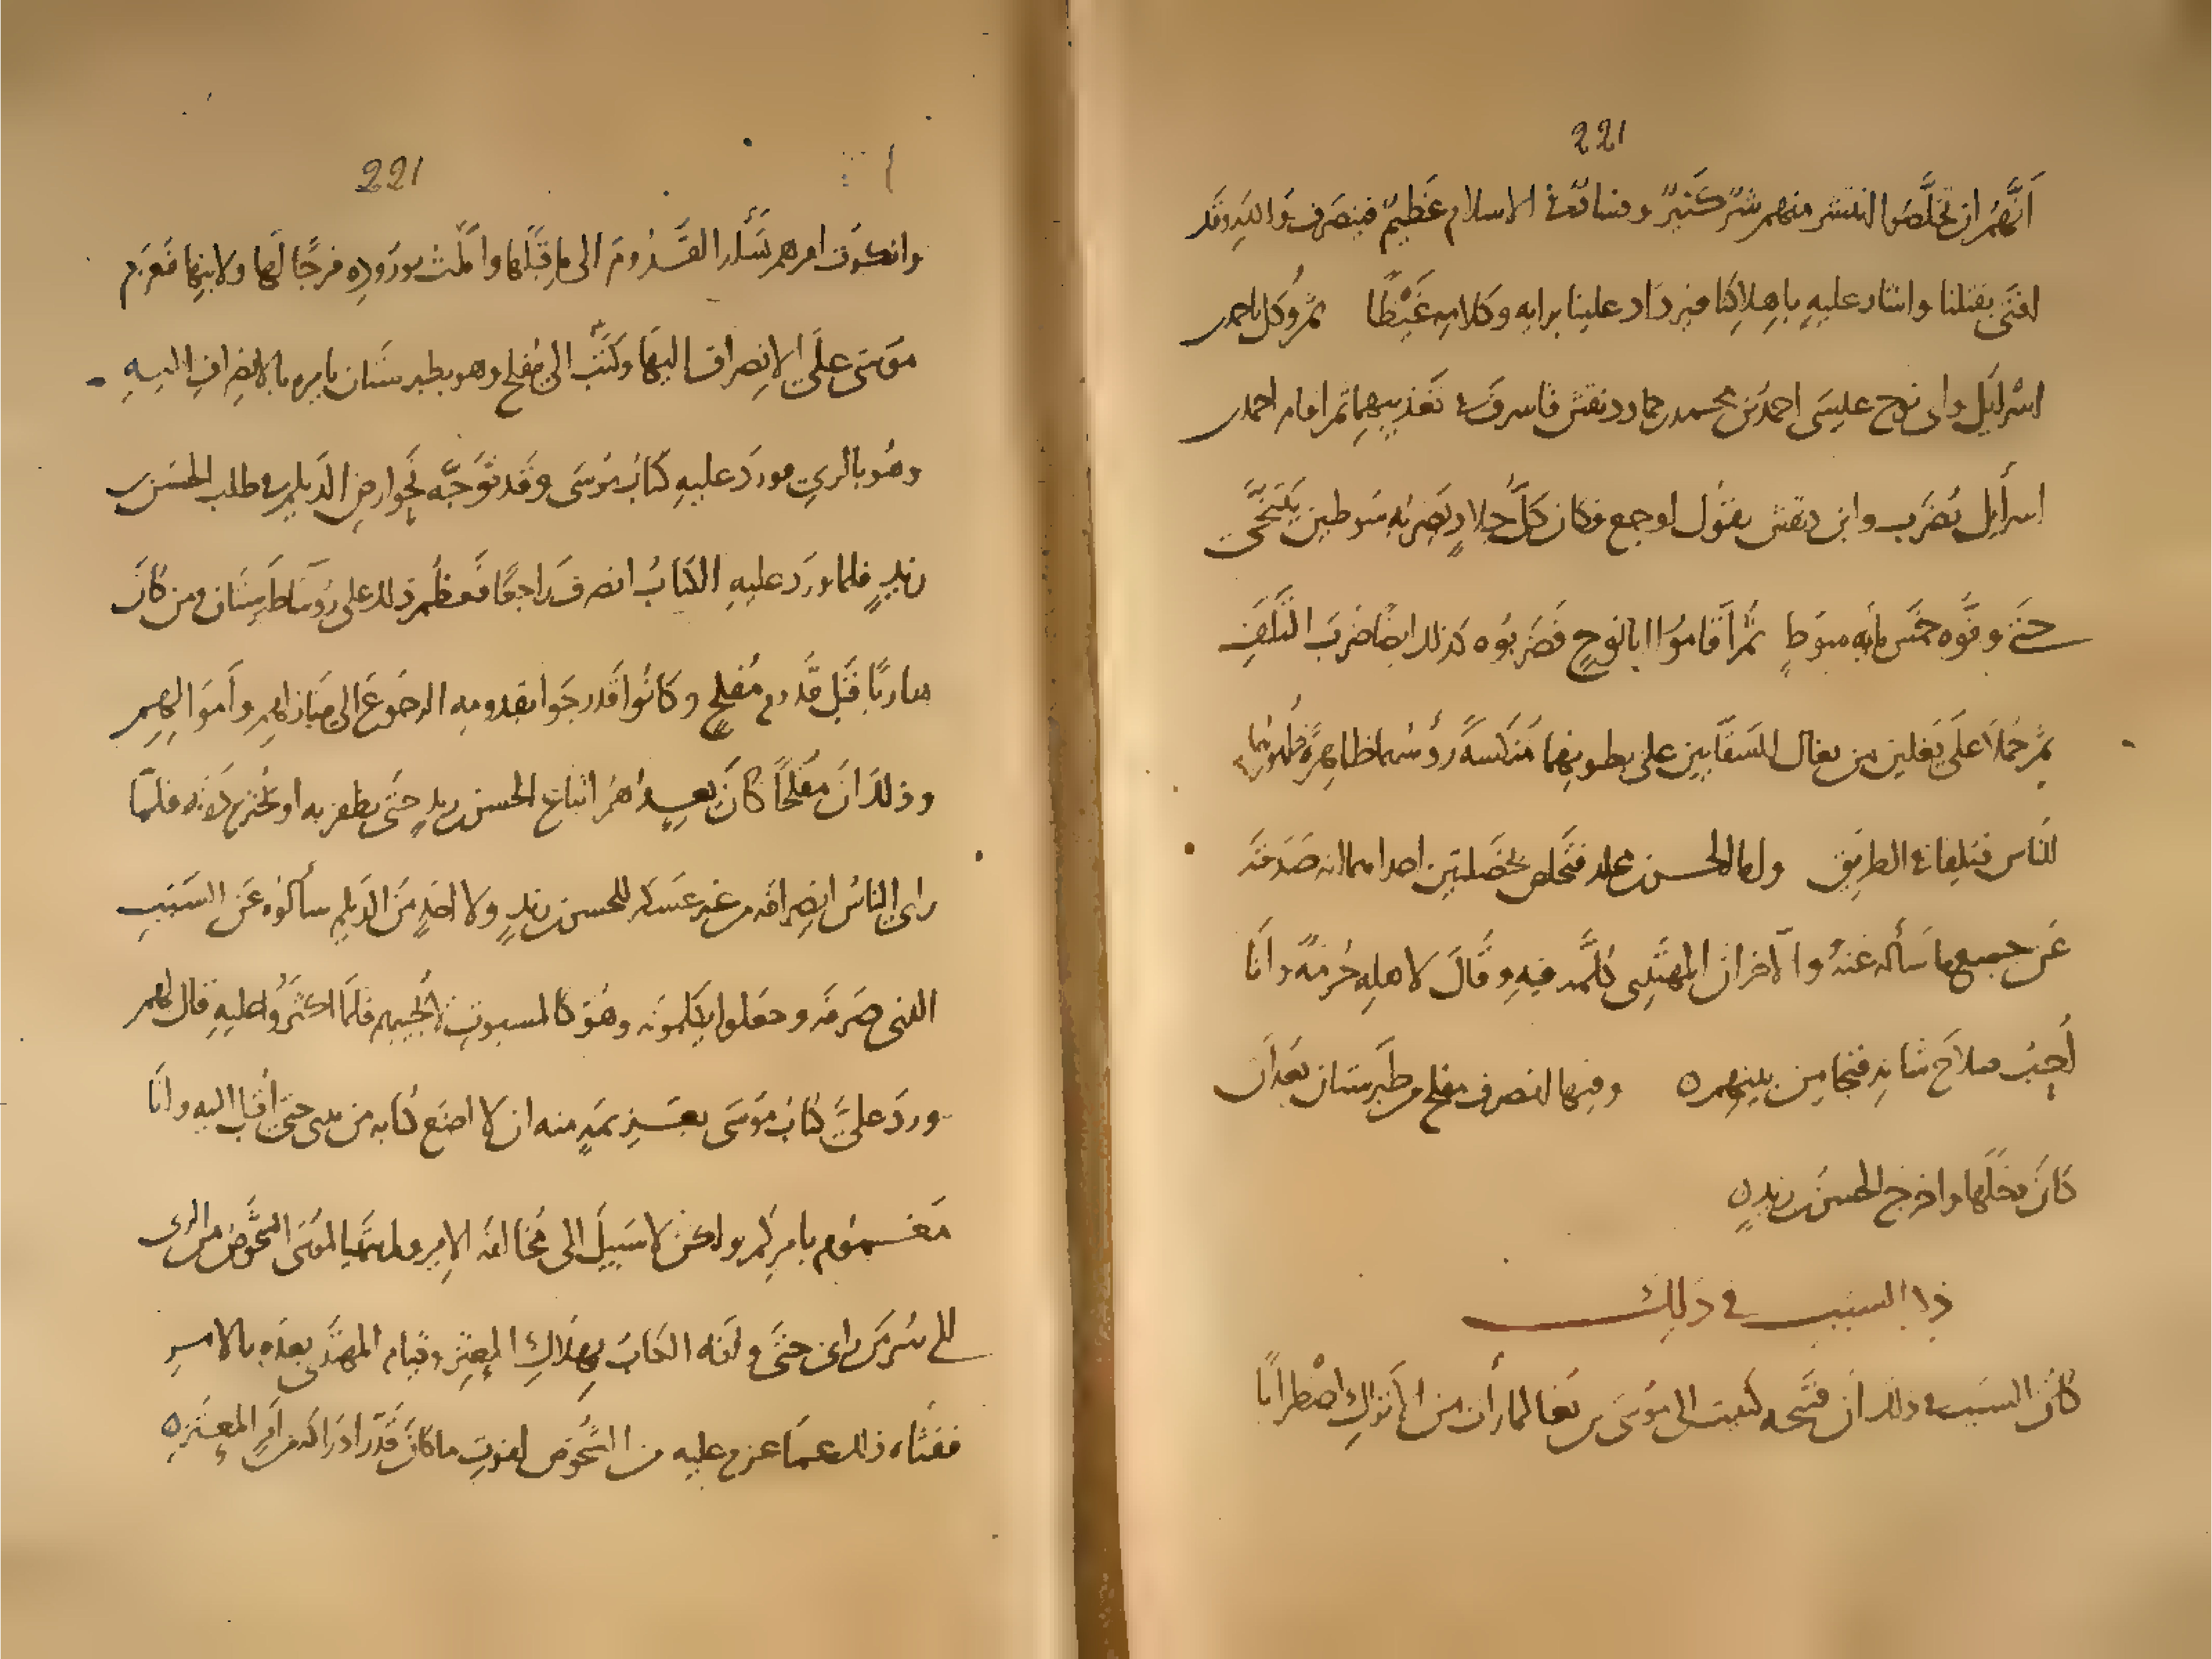 221
أنهم ان تخلصوا انتشر منهم شر كثير وفساد في الاسلام عظيم فينصرف والليه وقد
افتى بقتلنا واشار عليه باهلاكنا فيزداد علينا برايه وكلامه غيظا ثم وكل باحمد بن
اسرايل وابى نوح عليسى احمد بن محمد حماد دنقش فاسرف فى تعذيبهما ثم اقام احمد بن
اسرأيل يضرب وابن دنقش يقول اوجع فكان كل جلاد يضربه سوطين يتنحى
حتى وفوه خمس مايه سوط ثم اقاموا ابا نوح فضربوه كذلك ايضا ضرب التلف
ثم حملا على بغلين من بغال السقايين على بطونهما منكسة رؤسهما ظاهرة ظهورهما
للناس فتلفا فى الطريق واما الحسن بن مخلد فتخلص بخصلتين احداهما انه صدقه
عن جميع ما سأله عنه والآخر ان المهتدى كلمه فيه وقال لاهله حرمة وانا
أحب صلاح شانه فنجا من بينهم ٥ وفيها انصرف مفلح من طبرستان بعد ان
كان دخلها واخرج الحسن بن زيد ٥
ذكر السبب فى ذلك
كان السبب فى ذلك ان قبيحه كتبت الى موسى بن بغا لما رأت من الأتراك اضطرابا
221
وانكرت امرهم تسأله القدوم الى ما قبلها وأملت بوروده فرجا لها ولابنها فعزم
موسى على الانصراف اليها وكتب الى مفلح وهو بطبرستان يامره بالانصراف اليه
وهو بالري فورد عليه كتاب موسى وقد توجه نحو ارض الديلم فى طلب الحسن بن
زيد فلما ورد عليه الكتاب انصرف راجعا فعظم ذلك على رؤسا طبرستان ومن كان
هاربا قبل قدوم مفلح وكانوا قد رجوا بقدومه الرجوع الى منازلهم وأموالهم
وذلك ان مفلحا كان يعدهم اتباع الحسن بن زيد حتى يظفر به او يخترم دونه فلما
راى الناس انصرافه من غير عسكر للحسن بن زيد ولا احد من الديلم سألوه عن السبب
الذى صرفه وجعلوا يكلمونه وهو كالمسبوت لا يجيبهم فلما اكثروا عليه قال لهم
ورد علي كتاب موسى بعزيمة منه ان لا اضع كتابه من يدى حتى أقبل اليه وانا
مغموم بامركم ولكن لا سبيل الى مخالفة الامير ولم يتهيا لموسى الشخوص من الرى
الى سر من راى حتى وافاه الكتاب بهلاك المعتز وقيام المهتدى بعده بالامر
ففثاه ذلك عما عزم عليه من الشخوص لفوت ما كان قدر ادراكه من امر المعتز ٥